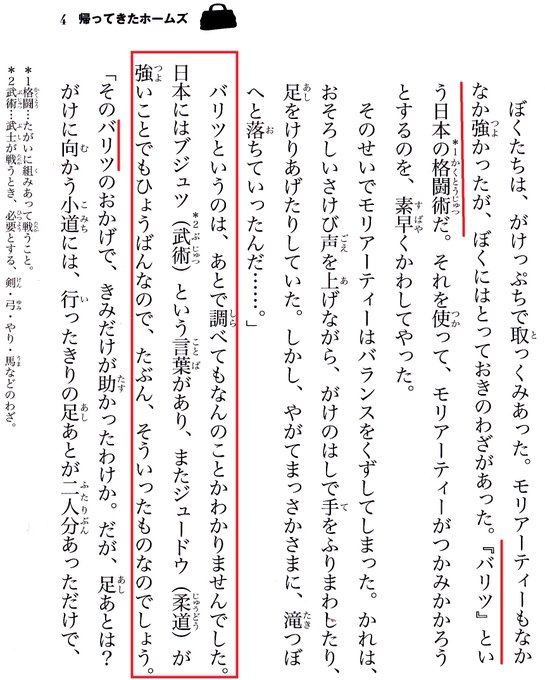 4 帰ってきたホームズ
ぼくたちは、がけっぷちで取っくみあった。モリアーティーもなか
なか強かったが、ぼくにはとっておきのわざがあった。『バリツ』とい
う日本の*1格闘術だ。それを使って、モリアーティーがつかみかかろう
とするのを、素早くかわしてやった。
そのせいでモリアーティーはバランスをくずしてしまった。かれは、
おそろしいさけび声を上げながら、がけのはしで手をふりまわしたり、
足をけりあげたりしていた。しかし、やがてまっさかさまに、滝つぼ
へと落ちていったんだ……。」
バリツというのは、あとで調べてもなんのことかわかりませんでした。
日本にはブジュツ(*2武術)という言葉があり、またジュードウ(柔道)が
強いことでもひょうばんなので、たぶん、そういったものなのでしょう。
「そのバリツのおかげで、きみだけが助かったわけか。だが、足あとは?
がけに向かう小道には、行ったきりの足あとが二人分あっただけで、
*1格闘…たがいに組みあって戦うこと。
*2武術…武士が戦うとき、必要とする、剣・弓・やり・馬などのわざ。